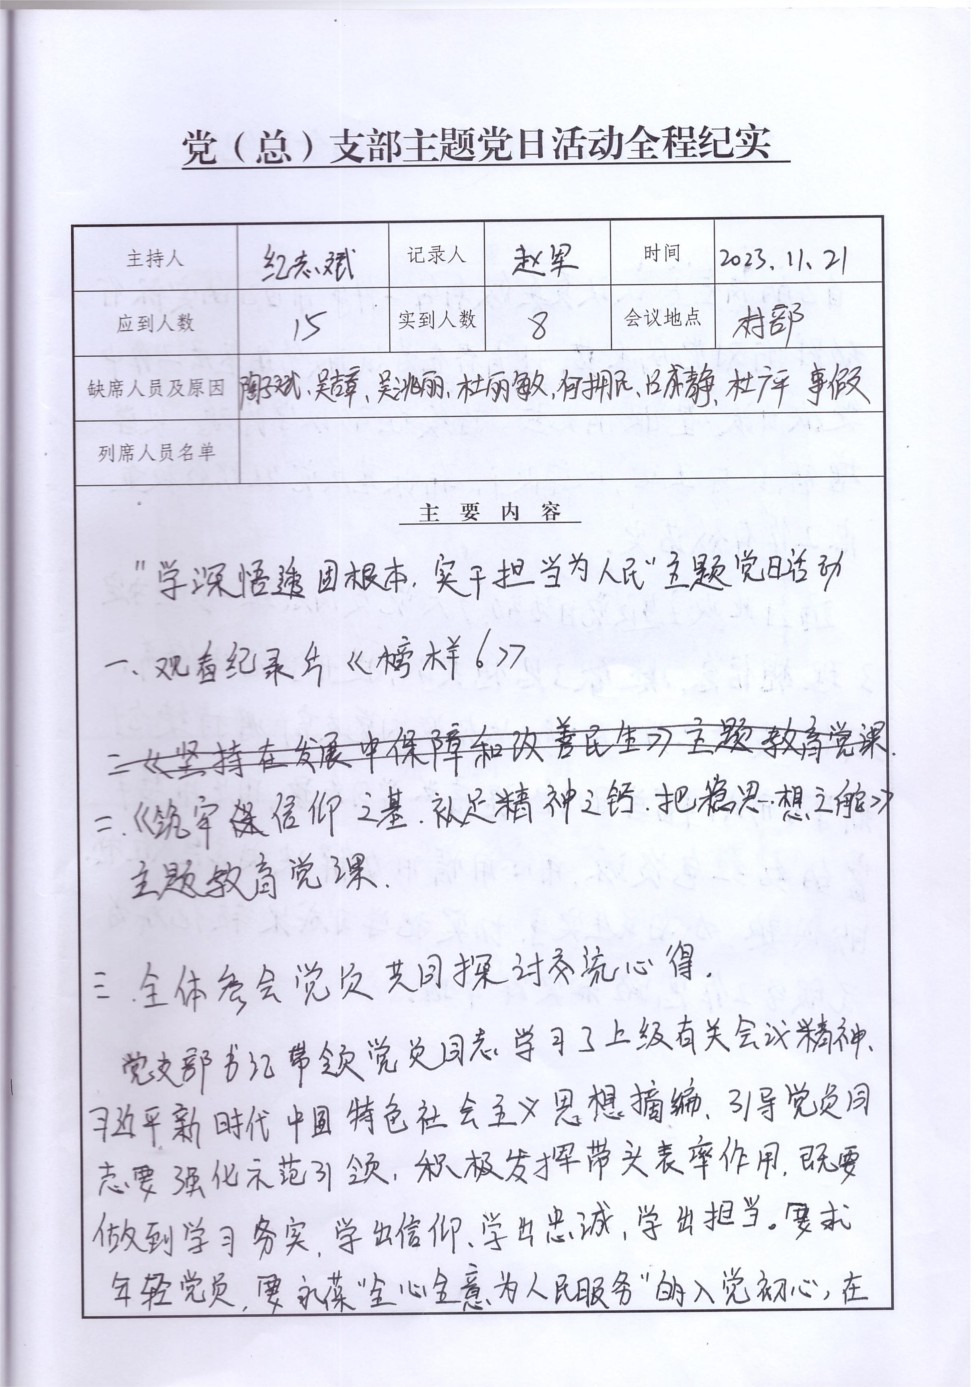 党（总）支部主题党日活动全程纪实
主持人 纪志斌 记录人 赵军 时间 2023.11.21
应到人数 15 实到人数 8 会议地点 村部
缺席人员及原因 陶斌、吴璋、吴兆丽、杜丽敏、何拥民、静、杜广平 事假
列席人员名单
主要内容
"学深悟透固根本，实干担当为人民"主题党日活动
一、观看纪录片《榜样6》
二《坚持在发展中保障和改善民生》主题教育党课.
二.《筑牢信仰之基.补足精神之钙.把稳思想之舵》
主题教育党课.
三.全体参会党员共同探讨交流心得.
党支部书记带领党员同志学习了上级有关会议精神、
习近平新时代中国特色社会主义思想摘编、引导党员同
志要强化示范引领，积极发挥带头表率作用，既要
做到学习务实，学出信仰、学出忠诚，学出担当。要求
年轻党员，要永葆"全心全意为人民服务"的入党初心，在